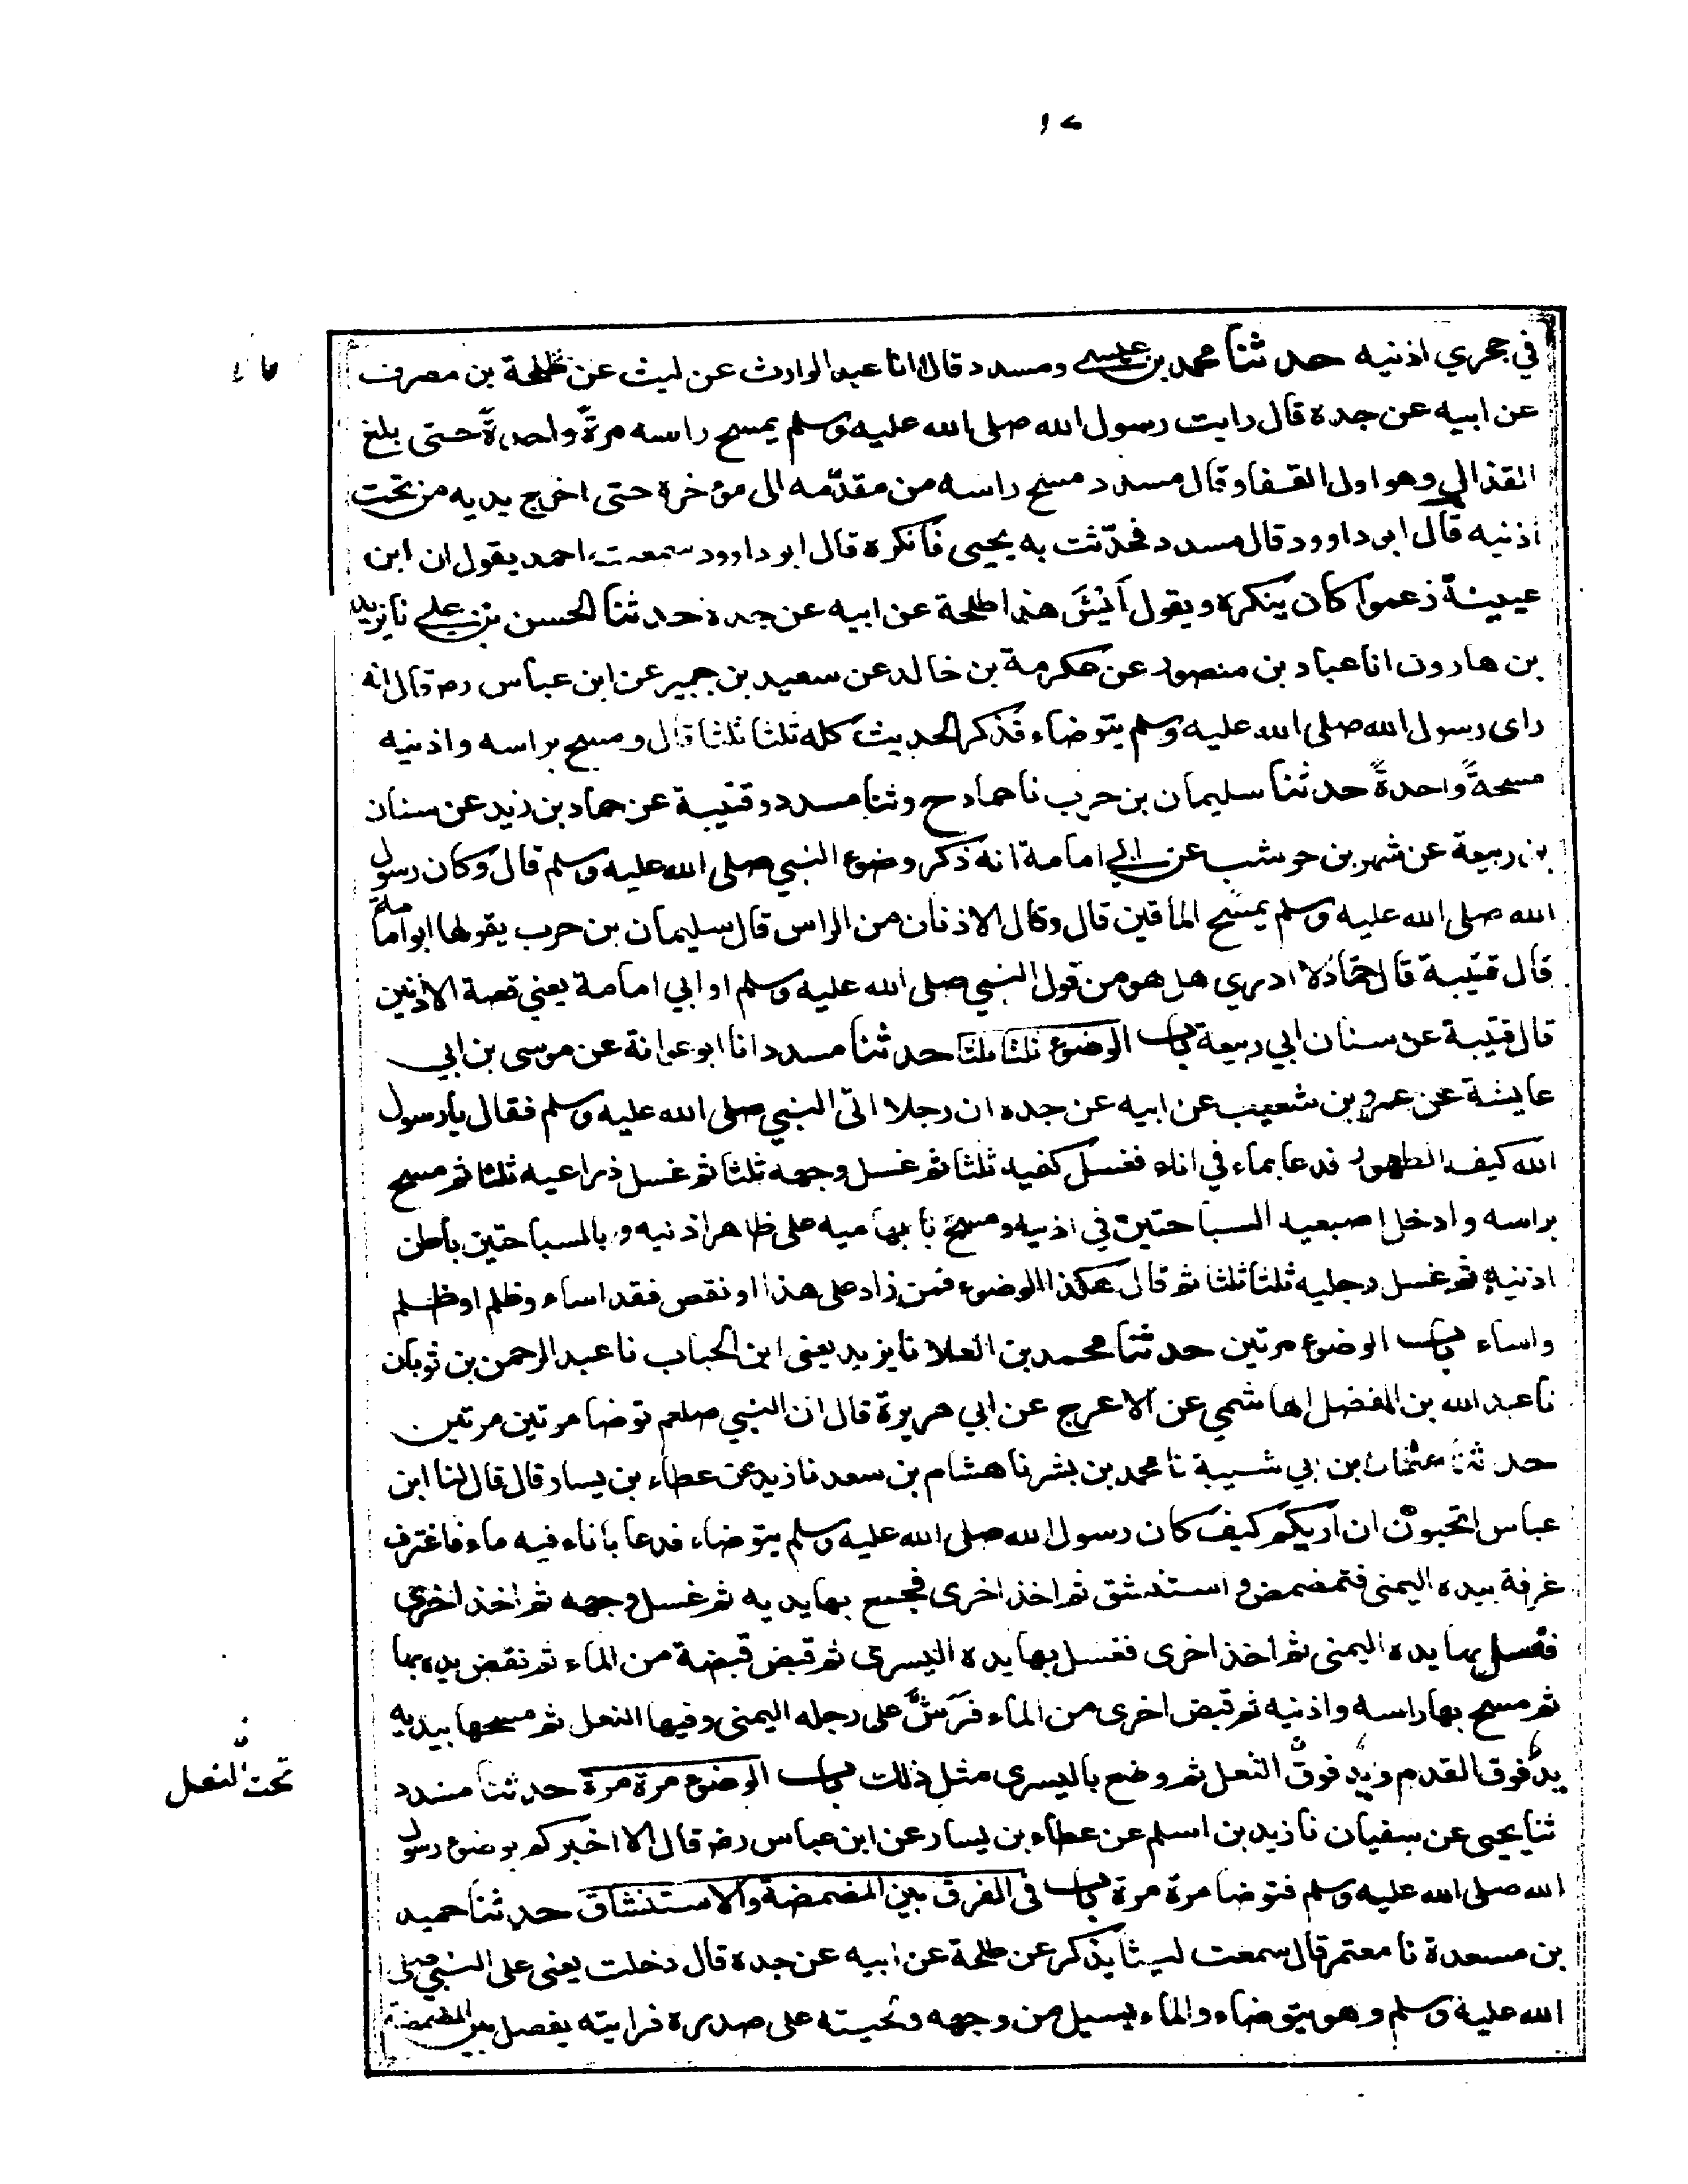 في جحري اذنيه حدثنا محمد بن عيسى ومسدد قالا انا عبد الوارث عن ليث عن طلحة بن مصرف
عن ابيه عن جده قال رايت رسول الله صلى الله عليه وسلم يمسح راسه مرةً واحدةً حتى بلغ
القذال وهو اول القفا وقال مسدد مسح راسه من مقدّمه الى موخرة حتى اخرج يديه من تحت
اذنيه قال ابو داوود قال مسدد فحدّثت به يحيى فانكره قال ابو داوود سمعت احمد يقول ان ابن
عيينة زعموا كان ينكره ويقول اَيْشَ هذا طلحة عن ابيه عن جده حدثنا الحسن بن علي نا يزيد
بن هارون انا عباد بن منصور عن عكرمة بن خالد عن سعيد بن جبير عن ابن عباس رض قال انه
راى رسول الله صلى الله عليه وسلم يتوضاء فذكر الحديث كله ثلثا ثلثا قال ومسح براسه واذنيه
مسحةً واحدةً حدثنا سليمان بن حرب نا حماد ح وثنا مسدد وقتيبة عن حماد بن زيد عن سنان
بن ربيعة عن شهر بن حوشب عن ابي امامة انه ذكر وضوء النبي صلى الله عليه وسلم قال وكان رسول
الله صلى الله عليه وسلم يمسح الماقين قال وقال الاذنان من الراس قال سليمان بن حرب يقولها ابو امامة
قال قتيبة قال حماد لا ادري هل هو من قول النبي صلى الله عليه وسلم او ابي امامة يعني قصة الاذنين
قال قتيبة عن سنان ابي ربيعة باب الوضوء ثلثا ثلثا حدثنا مسدد انا ابو عوانة عن موسى بن ابي
عايشة عن عمرو بن شعيب عن ابيه عن جده ان رجلا اتى النبي صلى الله عليه وسلم فقال يا رسول
الله كيف الطهور فدعا بماء في اناء فغسل كفيه ثلثا ثم غسل وجهه ثلثا ثم غسل ذراعيه ثلثا ثم مسح
براسه وادخل اصبعيه السباحتين في اذنيه ومسح بابهاميه على ظاهر اذنيه وبالسباحتين باطن
اذنيه ثم غسل رجليه ثلثا ثلثا ثم قال هكذا الوضوء فمن زاد على هذا او نقص فقد اساء وظلم او ظلم
واساء باب الوضوء مرتين حدثنا محمد بن العلا نا يزيد يعنى ابن الحباب نا عبد الرحمن بن ثوبان
نا عبد الله بن المفضل الهاشمي عن الاعرج عن ابي هريرة قال ان النبي صلعم توضا مرتين مرتين
حدثنا عثمان بن ابي شيبة نا محمد بن بشر نا هشام بن سعد نا زيد عن عطاء بن يسار قال قال لنا ابن
عباس اتحبون ان اريكم كيف كان رسول الله صلى الله عليه وسلم يتوضاء فدعا باناء فيه ماء فاغترف
غرفة بيده اليمنى فتمضمض واستنشق ثم اخذ اخرى فجمع بها يديه ثم غسل وجهه ثم اخذ اخرى
فغسل بها يده اليمنى ثم اخذ اخرى فغسل بها يده اليسرى ثم قبض قبضة من الماء ثم نفض يده بها
ثم مسح بها راسه واذنيه ثم قبض اخرى من الماء فرَشَّ على رجله اليمنى وفيها النعل ثم مسحها بيديه
يد فوق القدم ويد فوق النعل ثم وضع باليسرى مثل ذلك باب الوضوء مرة مرة حدثنا مسدد
تحت النعل
ثنا يحيى عن سفيان نا زيد بن اسلم عن عطاء بن يسار عن ابن عباس رض قال الا اخبركم بوضوء رسول
الله صلى الله عليه وسلم فتوضا مرة مرة باب في الفرق بين المضمضة والاستنشاق حدثنا حميد
بن مسعدة نا معتمر قال سمعت ليثا يذكر عن طلحة عن ابيه عن جده قال دخلت يعنى على النبي صلى
الله عليه وسلم وهو يتوضاء والماء يسيل من وجهه ولحيته على صدره فرايته يفصل بين المضمضة